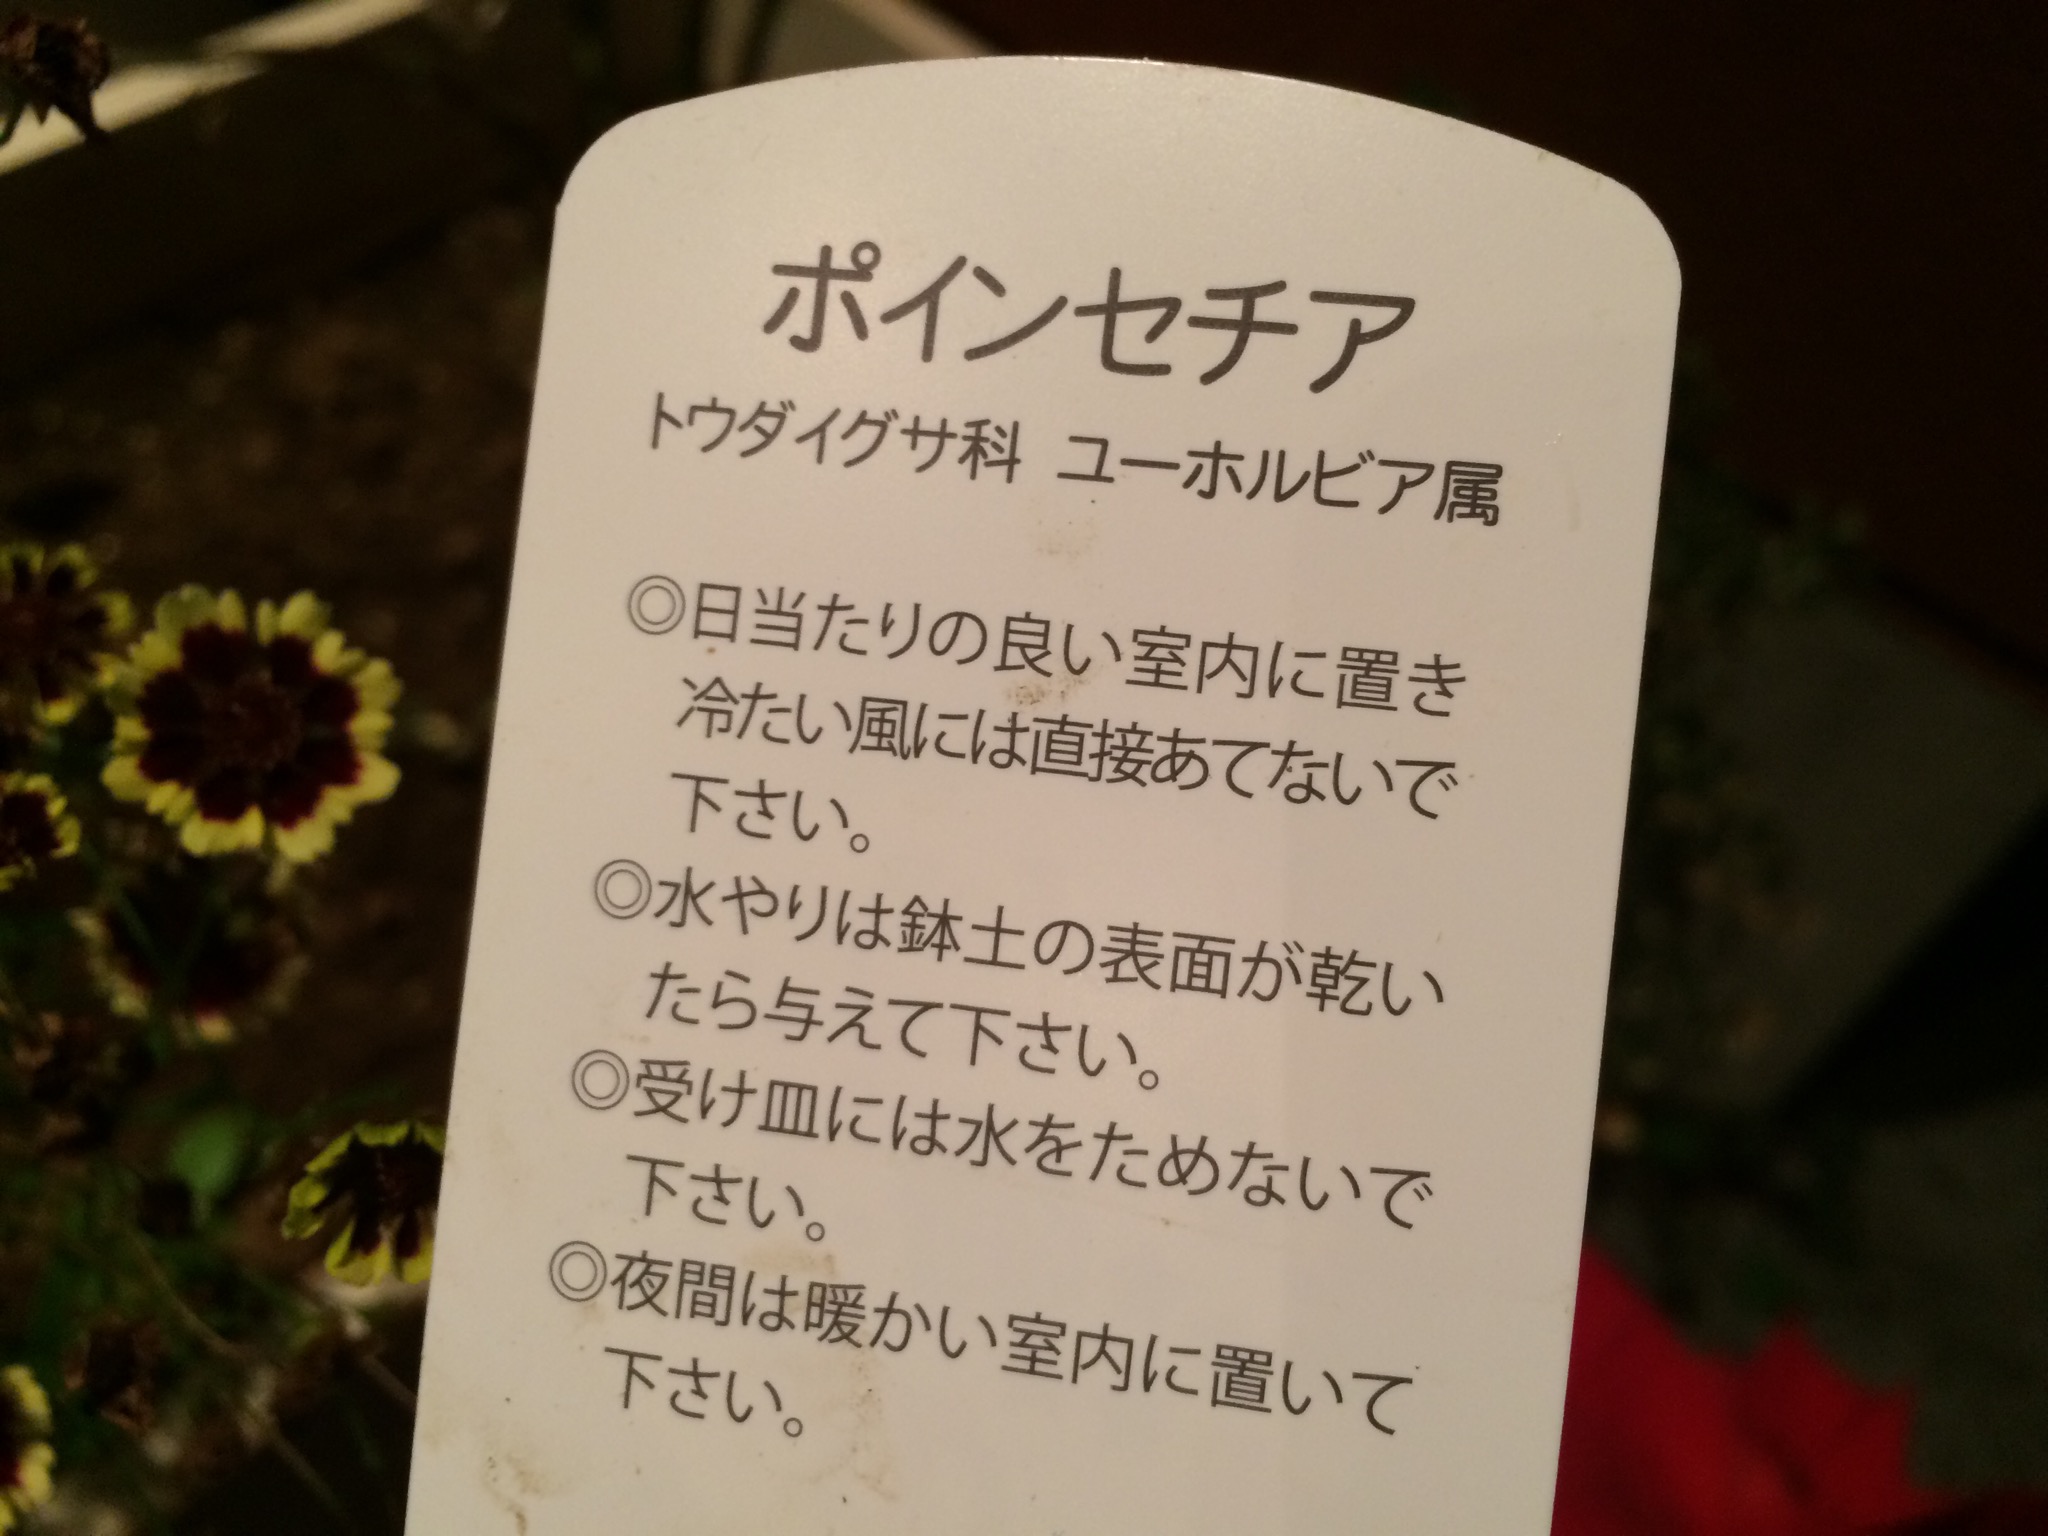 ポインセチア
トウダイグサ科 ユーホルビア属
◎日当たりの良い室内に置き
冷たい風には直接あてないで
下さい。
◎水やりは鉢土の表面が乾い
たら与えて下さい。
◎受け皿には水をためないで
下さい。
◎夜間は暖かい室内に置いて
下さい。